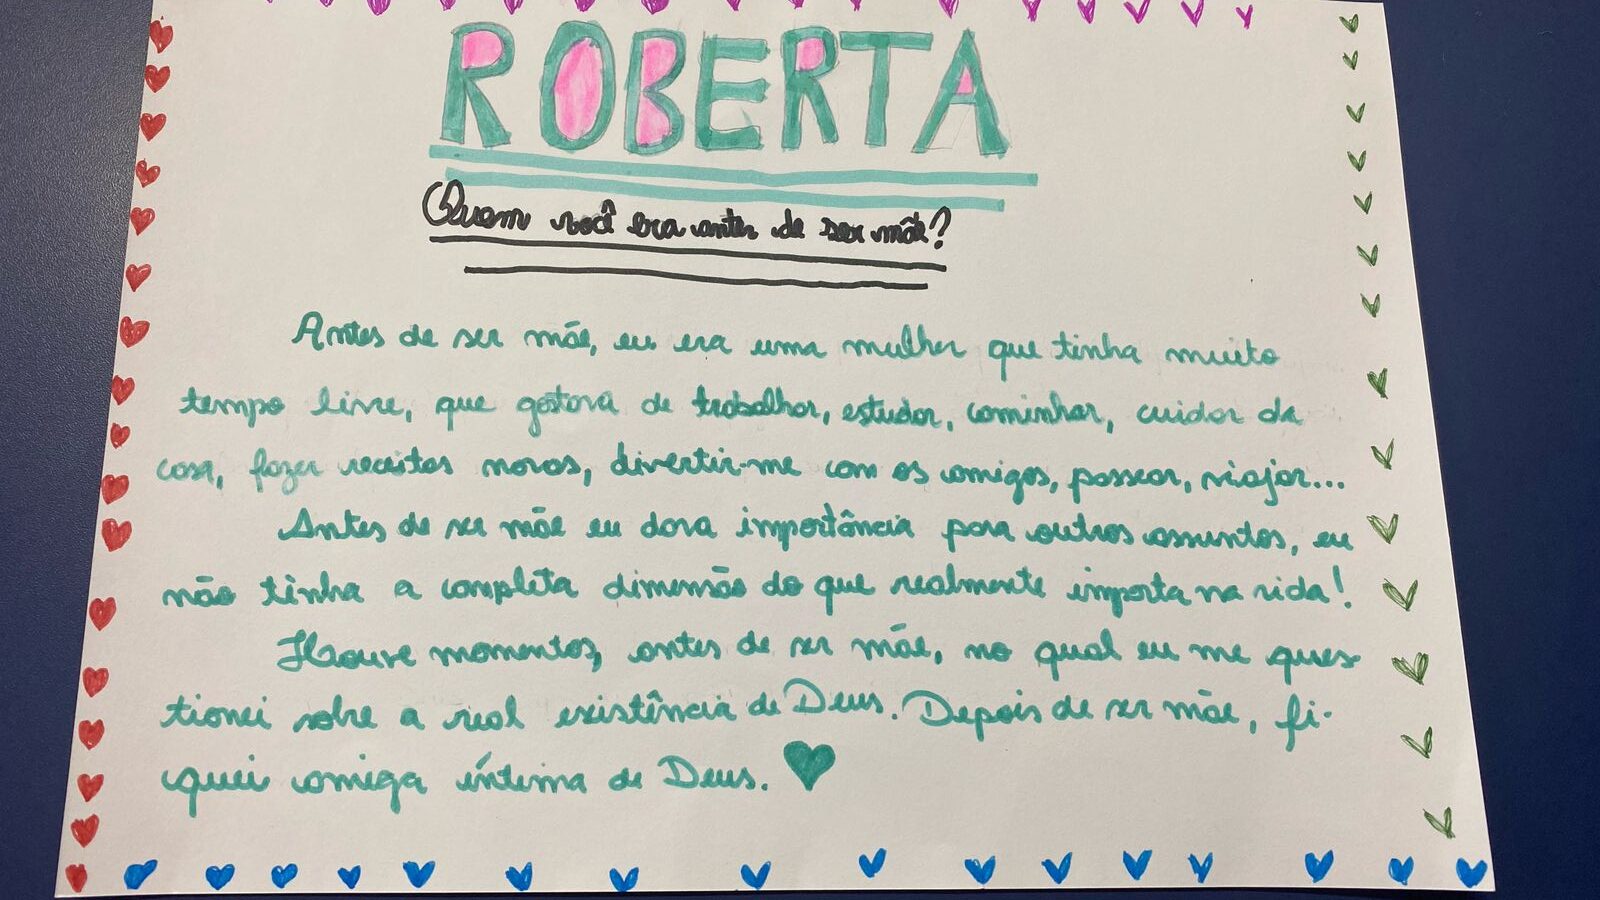 ROBERTA
Quem você era antes de ser mãe?
Antes de ser mãe, eu era uma mulher que tinha muito
tempo livre, que gostava de trabalhar, estudar, caminhar, cuidar da
casa, fazer receitas novas, divertir-me com os amigos, passear, viajar...
Antes de ser mãe eu dava importância para outros assuntos, eu
não tinha a completa dimensão do que realmente importa na vida!
Houve momentos, antes de ser mãe, no qual eu me ques-
tionei sobre a real existência de Deus. Depois de ser mãe, fi-
quei amiga íntima de Deus.